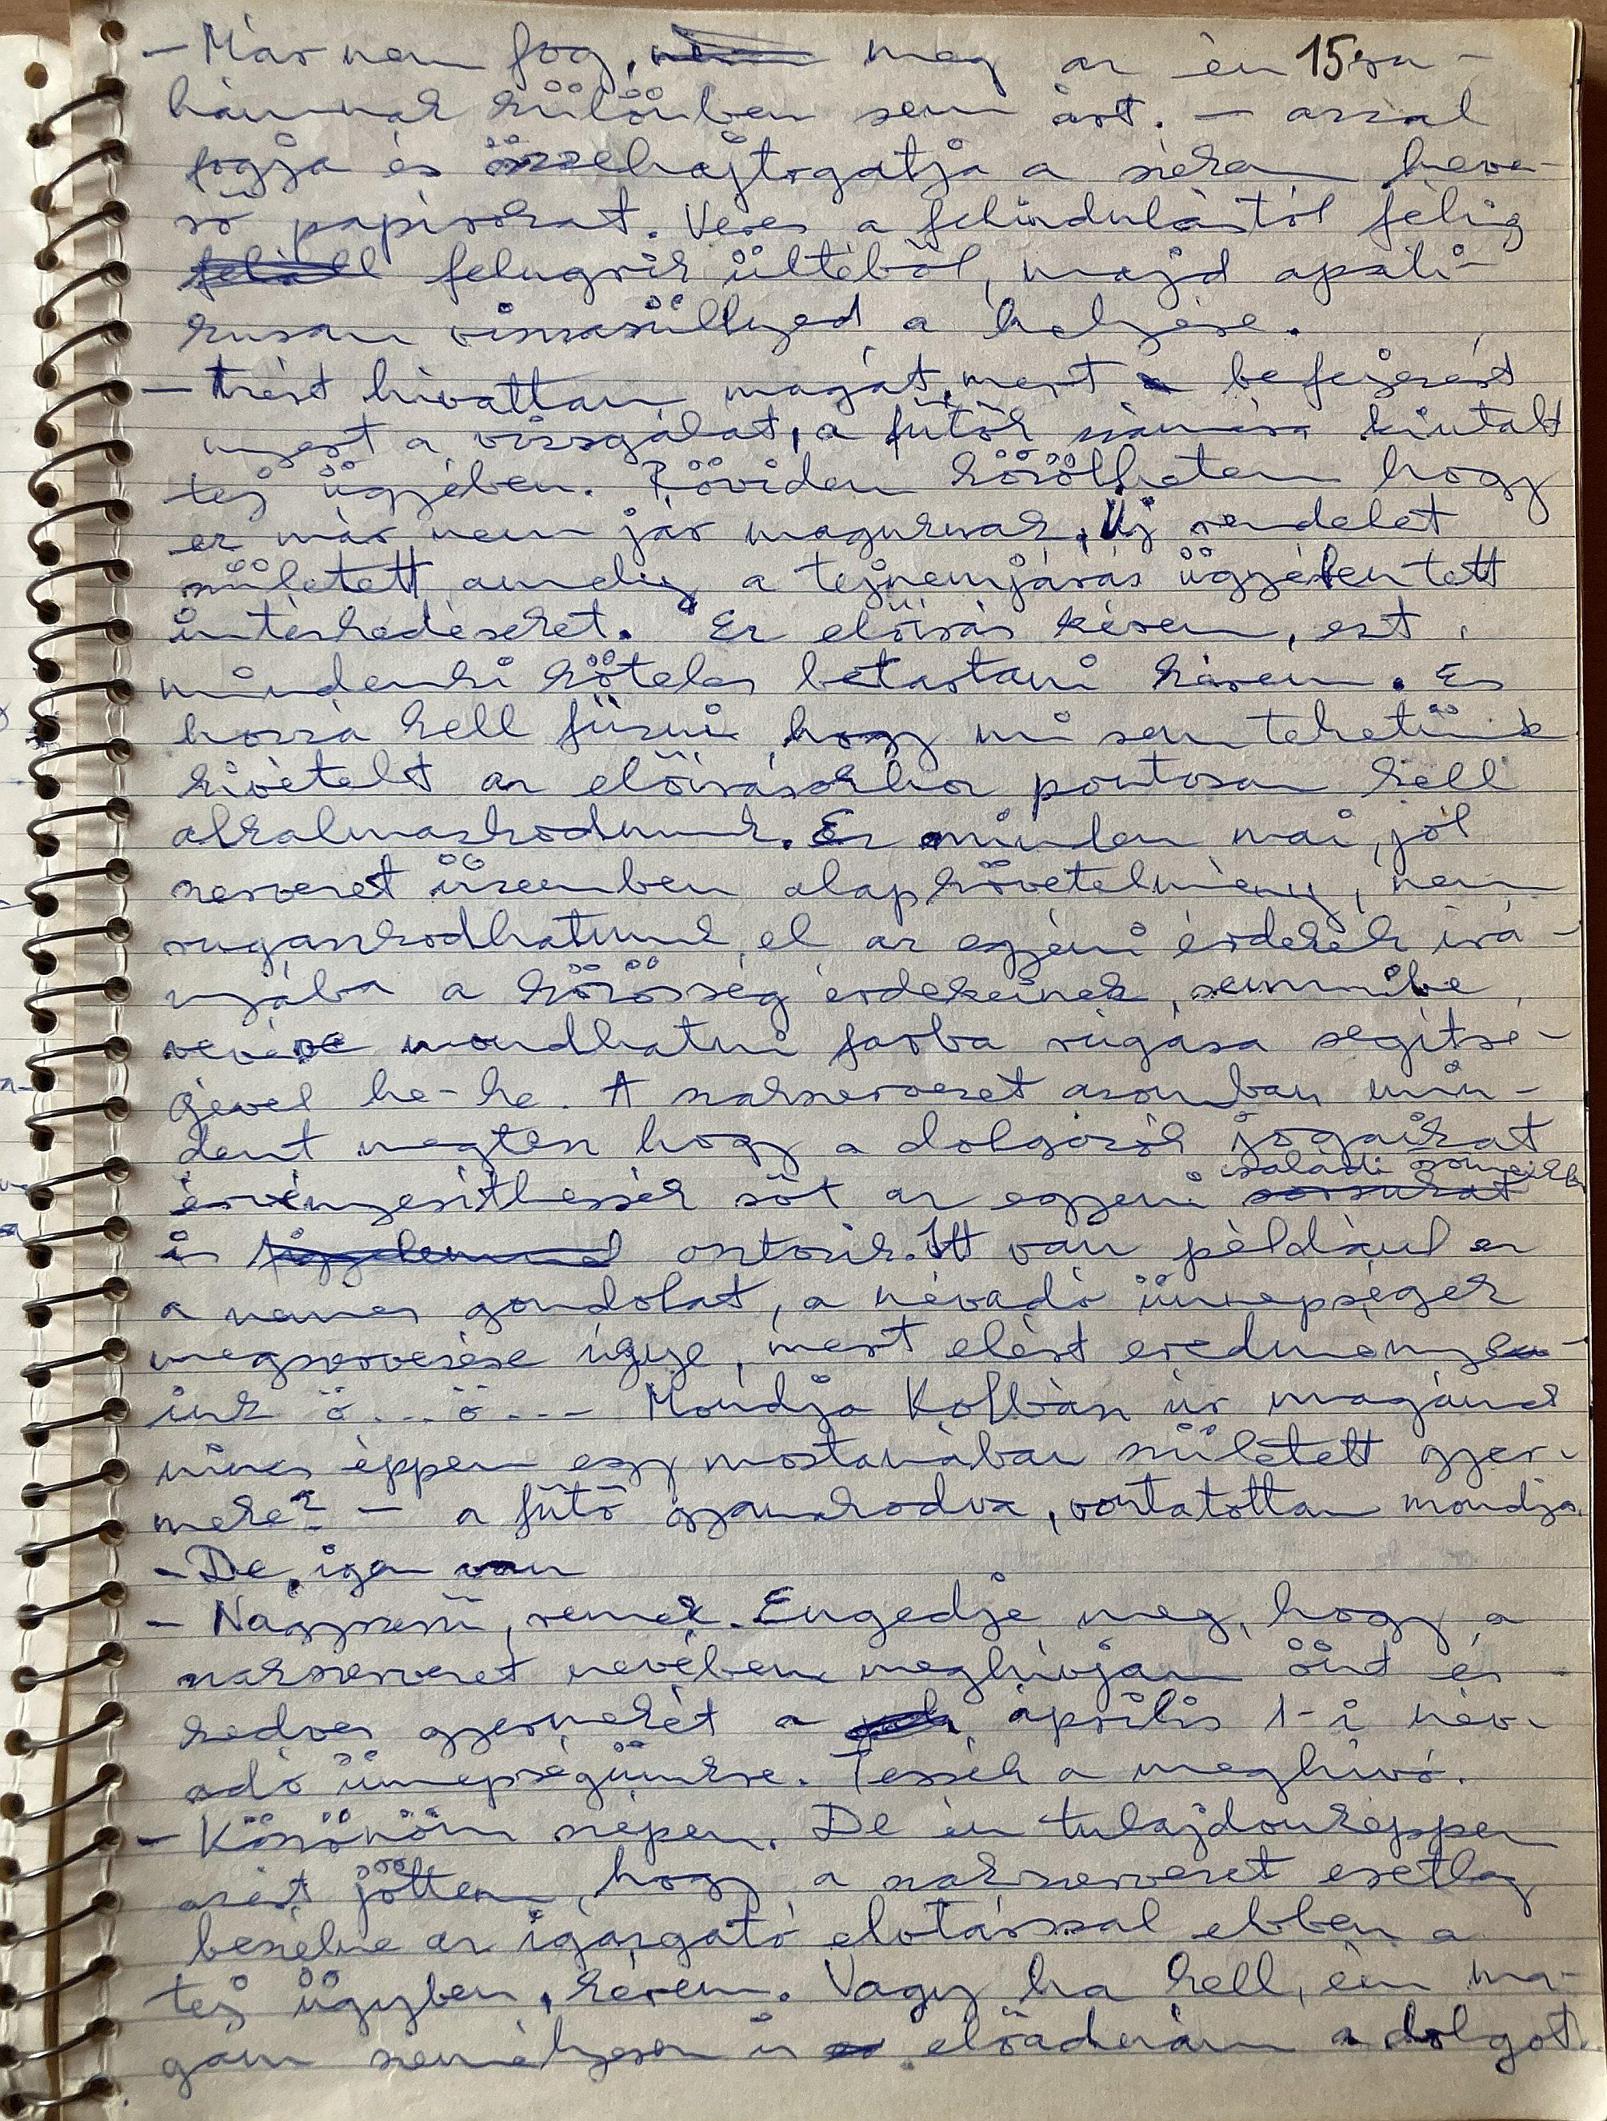 – Már nem fog, meg az én 15 ru-
hámnak különben sem árt. – azzal
fogja és összehajtogatja a széken heve-
rő papírokat. Veres a felindulástól félig
felugrik ültéből, majd apati-
kusan visszasüllyed a helyére.
– Azért hivattam magát, mert befejezést
nyert a vizsgálat, a fűtők számára kiutalt
tej ügyében. Röviden közölhetem hogy
ez már nem jár maguknak. Új rendelet
született amelly a tejnemjárás ügyében tett
intézkedéseket. Ez előirás kérem, ezt
mindenki köteles betartani kérem. És
hozzá kell fűzni hogy mi sem tehetünk
kivételt az előirásokhoz pontosan kell
alkalmazkodnunk. Ez minden mai, jól
szervezet üzemben alapkövetelmény, nem
rugaszkodhatunk el az egyéni érdekek irá-
nyába a közösség érdekeinek, semmibe
vevése mondhatni farba rúgása segitsé-
gével he-he. A szakszervezet azomban min-
dent megtesz hogy a dolgozók jogaikat
érvényesithessék sőt az egyéni családi
is osztozik. Itt van például ez
a nemes gondolat, a névadó ünnepségek
megszervezése ügye, mert elért eredménye-
ink ö...ö... Mondja Kolbász úr magának
nincs éppen egy mostanában született gyer-
meke? – a fűtő gyanakodva, vontatottan mondja.
– De, igen van
– Nagyszerű, remek. Engedje meg, hogy a
szakszervezet nevében meghivjam önt és
kedves gyermekét a április 1-i név-
adó ünnepségünkre. Tessék a meghivó.
– Köszönöm szépen. De én tulajdonképpen
azért jöttem, hogy a szakszervezet esetleg
beszélne az igazgató elvtárssal ebben a
tej ügyben, kérem. Vagy ha kell, én ma-
gam személyesen is előadnám a dolgot.